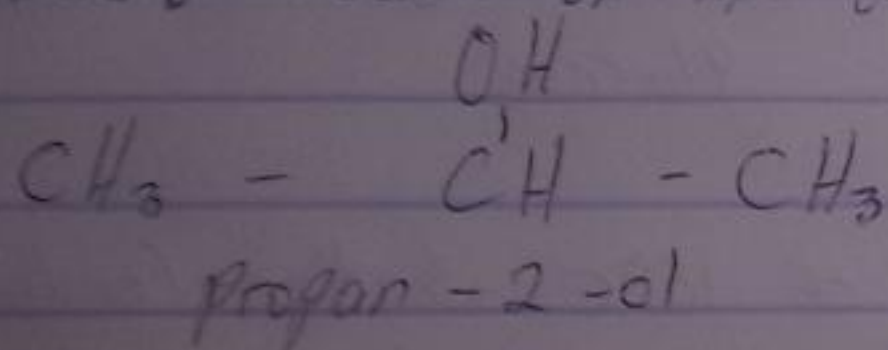 OH
CH₃ - CH - CH₃
propan - 2 - ol